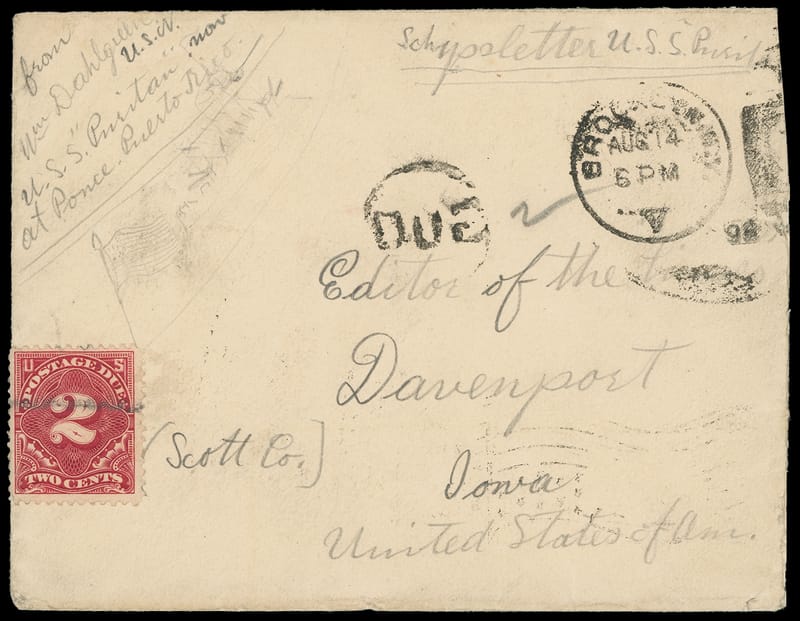 from
Wm Dahlgreen
U.S.N.
U.S.S. "Puritan" now
at Ponce. Puerto Rico.
Schypsletter U.S.S. Purit
BROOKLYN, N.Y.
AUG 14
6 PM
98
DUE
Editor of the
Davenport
(Scott Co.]
Iowa
United States of Am.
U S
POSTAGE DUE
2
TWO CENTS